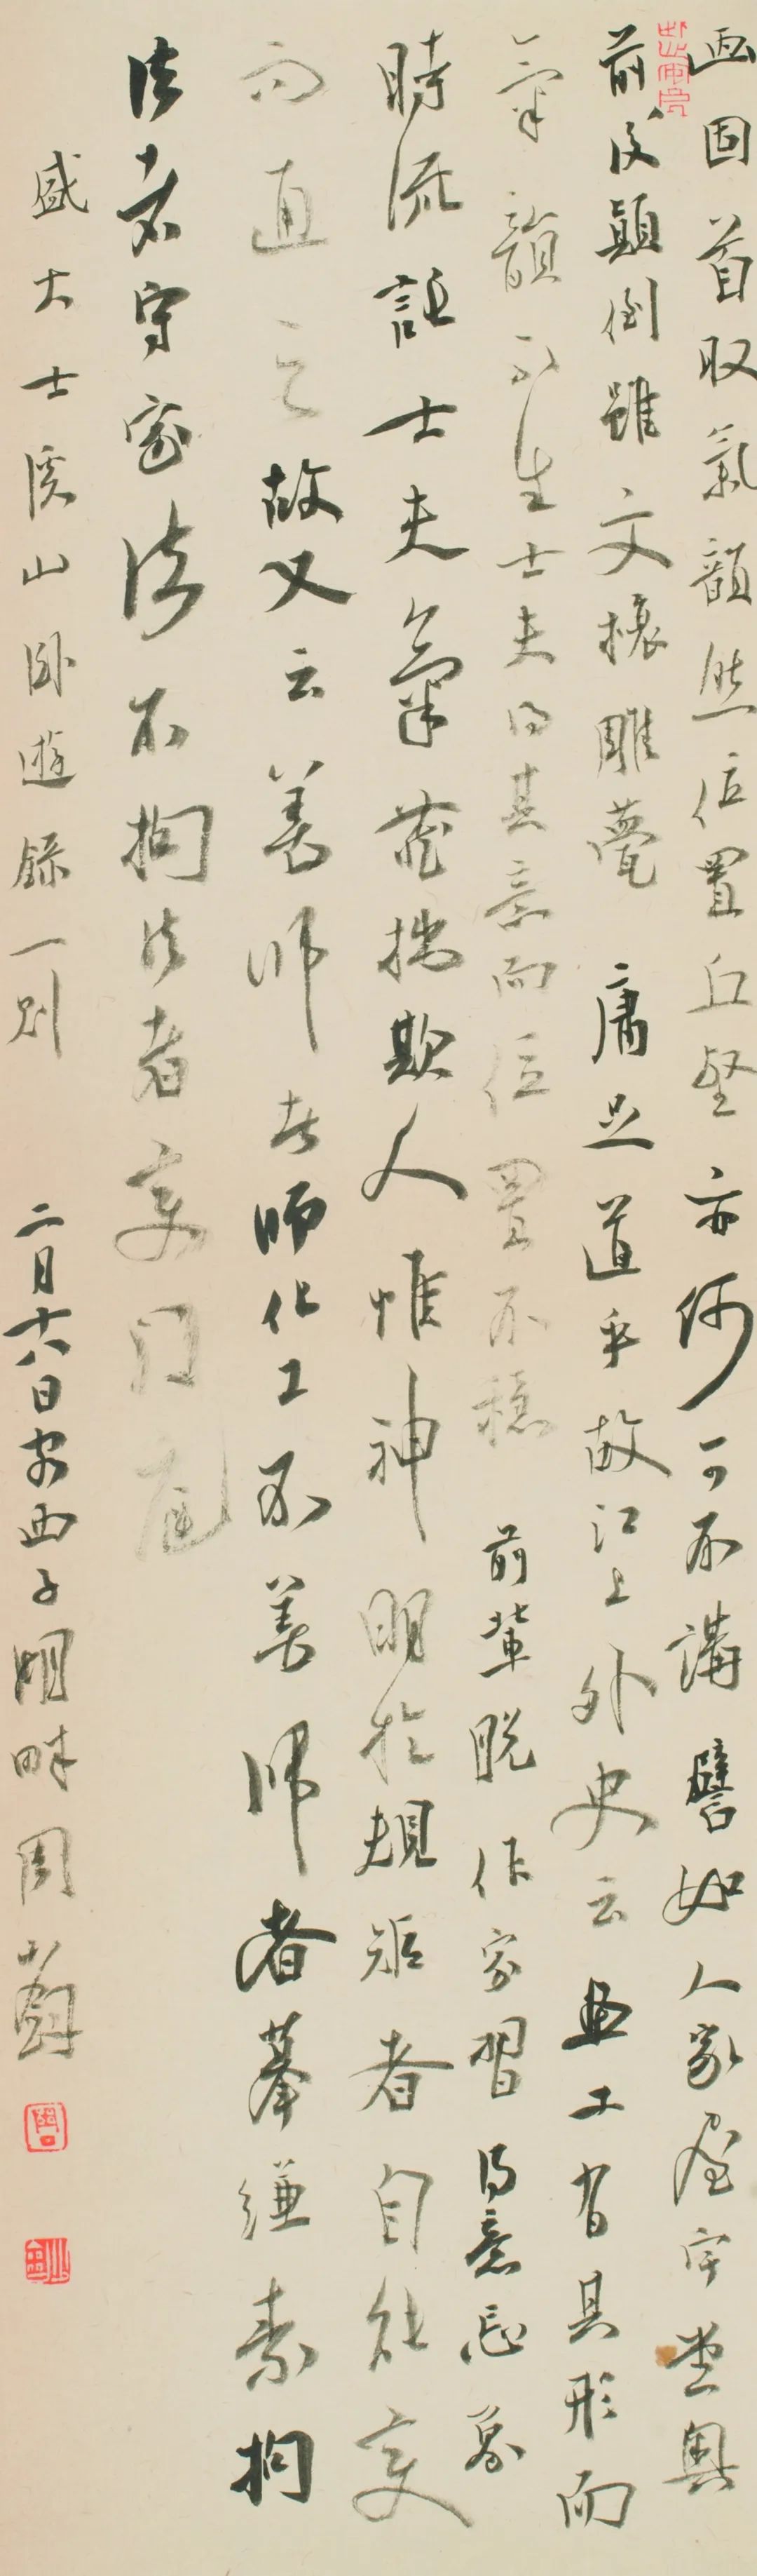 画固首取氣韻然位置丘壑亦何可不講譬如人家屋宇堂奧
前後顛倒雖文榱雕甍庸足道乎故江上外史云畫工有其形而
氣韻不生士夫得其意而位置不穩前輩脱作家習得意忘象
時流託士夫氣藏拙欺人惟神明於規矩者自能變
而通之故又云善師者師化工不善師者摹縑素拘
法者守家法不拘法者變門庭
盛大士溪山卧遊録一則
二月十八日客西子湖畔周